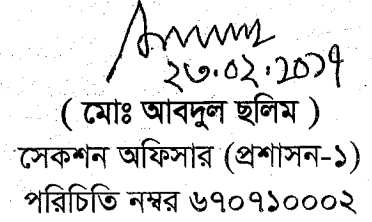 ২৩.০২.২০১৭
( মোঃ আবদুল ছলিম )
সেকশন অফিসার (প্রশাসন-১)
পরিচিতি নম্বর ৬৭০৭১০০০২